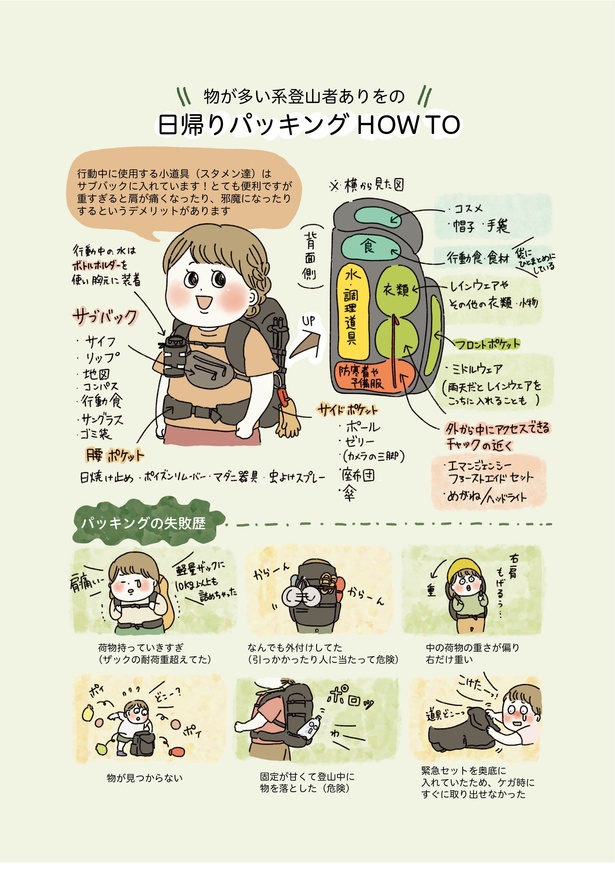 物が多い系登山者ありをの
日帰りパッキング HOW TO
行動中に使用する小道具（スタメン達）は
サブバックに入れています！とても便利ですが
重すぎると肩が痛くなったり、邪魔になったり
するというデメリットがあります
行動中の水は
ボトルホルダーを
使い胸元に装着
サブバック
・サイフ
・リップ
・地図
コンパス
・行動食
・サングラス
・ゴミ袋
腰ポケット
日焼け止め・ポイズンリムーバー・マダニ器具・虫よけスプレー
UP
サイドポケット
・ポール
・ゼリー
・(カメラの三脚)
・座布団
・傘
※横から見た図
(背面側)
食
水・調理道具
衣類
防寒着や
予備服
・コスメ
・帽子・手袋
行動食・食材
袋に
ひとまとめに
している
レインウェアや
その他の衣類・小物
フロントポケット
・ミドルウェア
(雨天だとレインウェアを
こっちに入れることも)
外から中にアクセスできる
チャックの近く
・エマージェンシー
ファーストエイドセット
・めがね/ヘッドライト
パッキングの失敗歴
肩痛い…
軽量ザックに
10kg以上も
詰めちゃった
荷物持っていきすぎ
（ザックの耐荷重超えてた）
からーん
からーん
なんでも外付けしてた
（引っかかったり人に当たって危険）
重
右肩
もげるぅ…
中の荷物の重さが偏り
右だけ重い
ポイ
どこー？
ポイ
物が見つからない
ポロッ
固定が甘くて登山中に
物を落とした（危険）
こけたーッ!
道具どこー
緊急セットを奥底に
入れていたため、ケガ時に
すぐに取り出せなかった